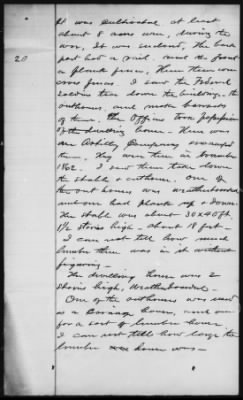 It was cultivated at least
about 8 acres even, during the
war, It was enclosed, the back
part had a rail, and the front
a plank fence, then there were
20 cross fences. I saw the Federal
soldiers tear down the buildings, the
outhouses, and make barracks
of them. the Officers took possession
of the dwelling house. There was
an Artillery Company occupied
it. They were there in November
1862. I saw them tear down
the stable & outhouses. One of
the out houses was weatherboarded
and one had plank up & down.
The stall was about 30x40 ft.
1 1/2 stories high - about 18 feet -
I can not tell how much
lumber there was in it without
figuring -
The dwelling house was 2
stories high, Weatherboarded -
One of the outhouses was used
as a Carriage house, and one
for a sort of lumber house.
I can not tell how large the
lumber house was -